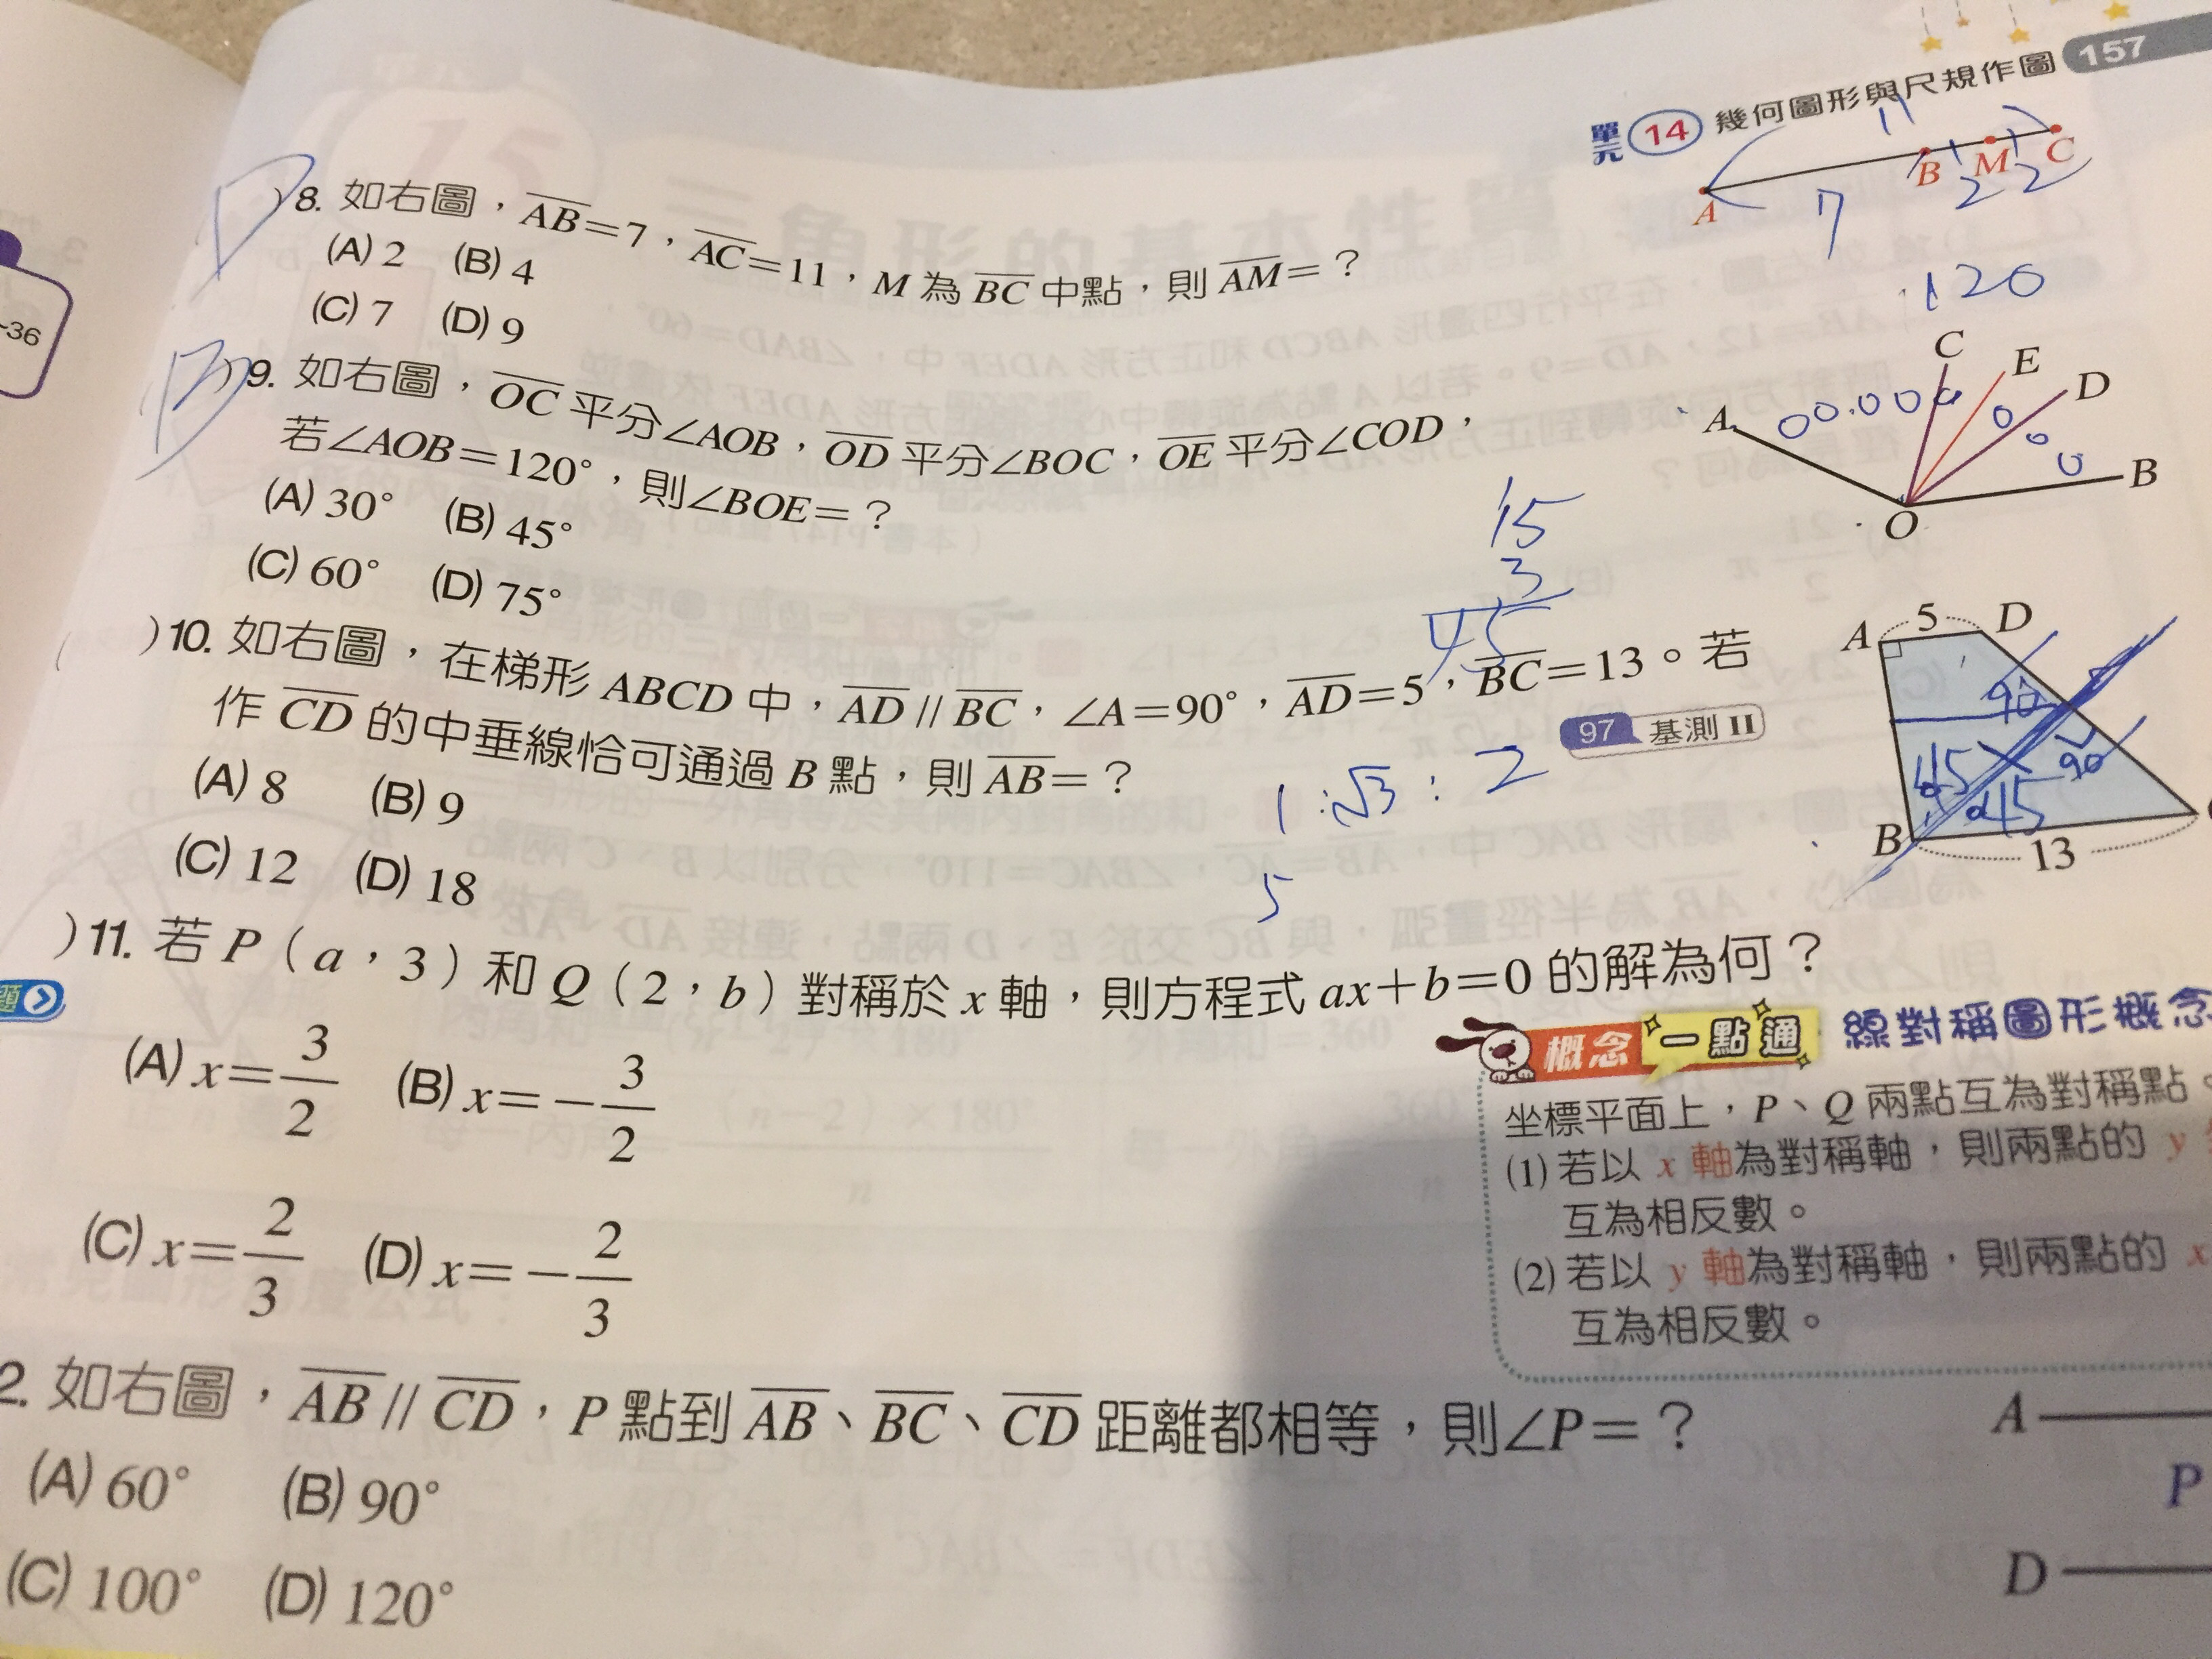 單元 14 幾何圖形與尺規作圖 157
D )8. 如右圖，AB=7，AC=11，M 為 BC 中點，則 AM=？
(A) 2 (B) 4
(C) 7 (D) 9
A 7 B 1 M 1 C
11
2 2
B )9. 如右圖，OC 平分∠AOB，OD 平分∠BOC，OE 平分∠COD，
若∠AOB=120°，則∠BOE=？
(A) 30° (B) 45°
(C) 60° (D) 75°
120
A C E D B O
15
3
45
( )10. 如右圖，在梯形 ABCD 中，AD // BC，∠A=90°，AD=5，BC=13。若
作 CD 的中垂線恰可通過 B 點，則 AB=？
97 基測 II
(A) 8 (B) 9
(C) 12 (D) 18
1 : √3 : 2
5
A 5 D
90
45 45 90
B 13
)11. 若 P（a，3）和 Q（2，b）對稱於 x 軸，則方程式 ax+b=0 的解為何？
題
(A) x=3/2 (B) x=−3/2
(C) x=2/3 (D) x=−2/3
概念 一點通 線對稱圖形概念
坐標平面上，P、Q 兩點互為對稱點。
(1) 若以 x 軸為對稱軸，則兩點的 y
互為相反數。
(2) 若以 y 軸為對稱軸，則兩點的 x
互為相反數。
2. 如右圖，AB // CD，P 點到 AB、BC、CD 距離都相等，則∠P=？
(A) 60° (B) 90°
(C) 100° (D) 120°
A
P
D
-36